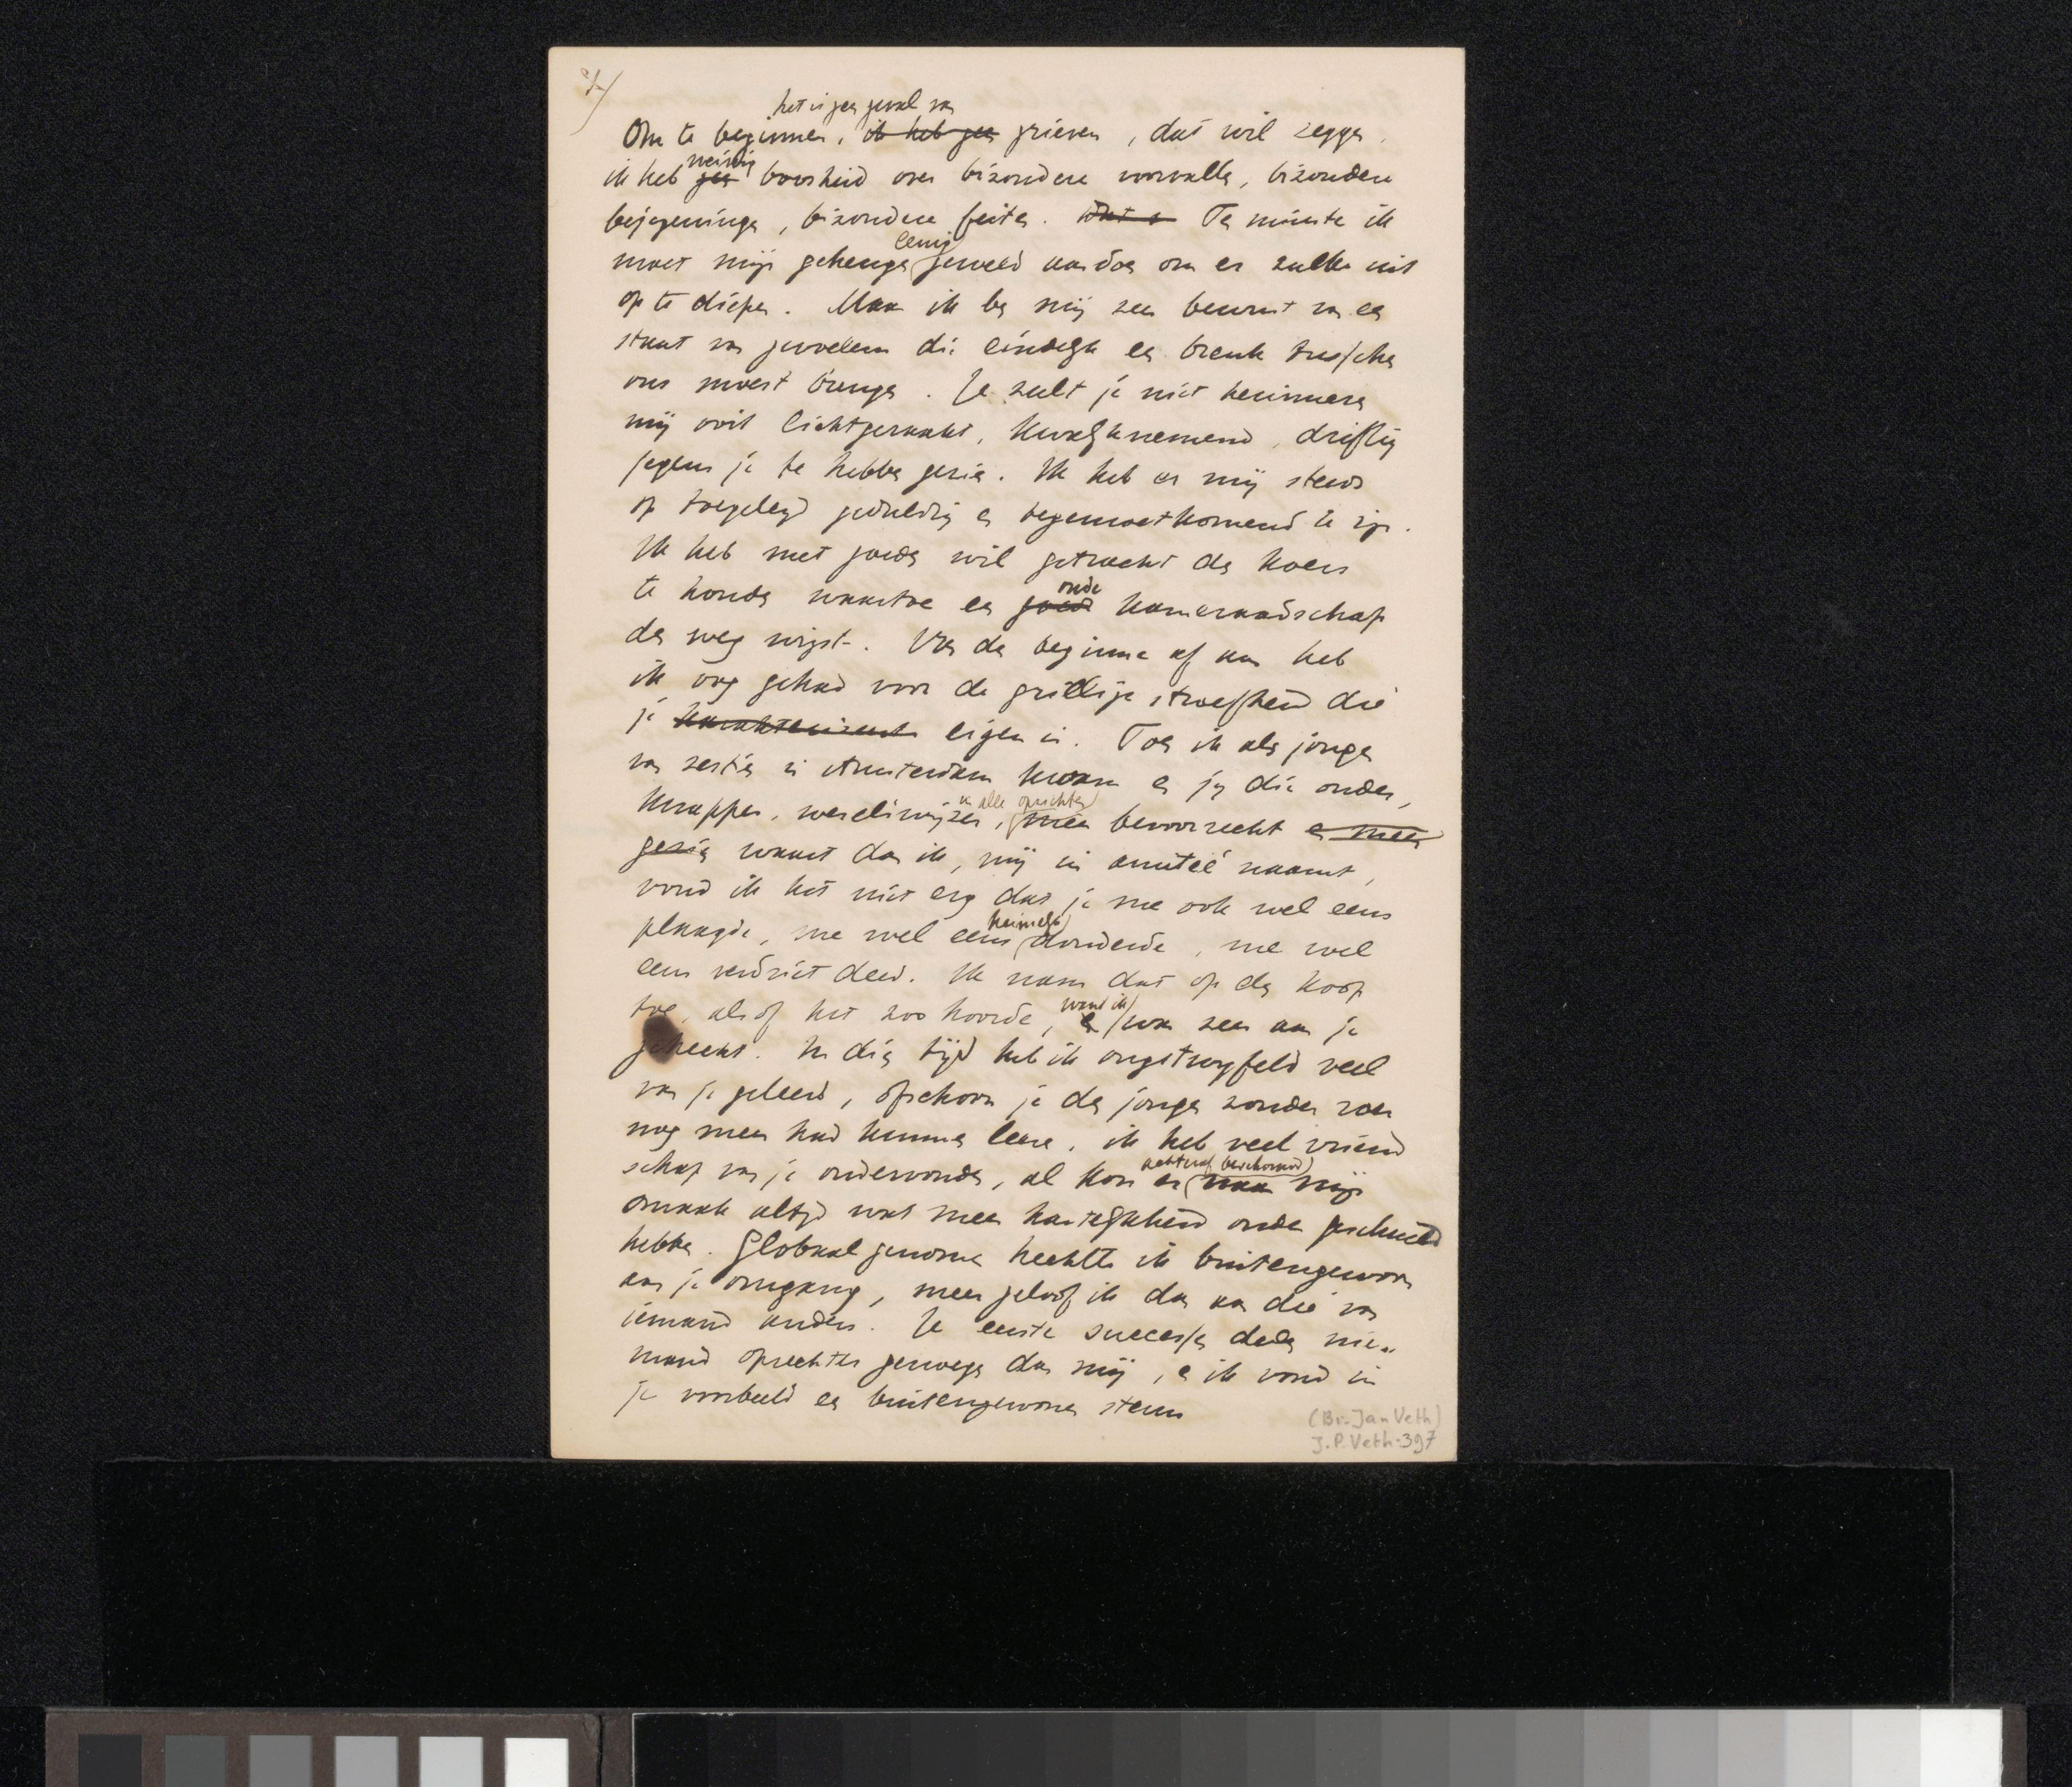 2)
het is geen geval van
Om te beginnen, ik heb geen grieven, dat wil zeggen,
weinig
ik heb geen boosheid over bizondere voorvallen, bizondere
bejegeningen, bizondere feiten. Wat e Ten minste ik
eenig
moet mijn geheugen geweld aandoen om er zulke uit
op te diepen. Maar ik ben mij zeer bewust van een
staat van gevoelens die eindelijk een breuk tusschen
ons moest brengen. Je zult je niet herinneren
mij ooit lichtgeraakt, kwalijknemend, driftig
jegens je te hebben gezien. Ik heb er mij steeds
op toegelegd geduldig en tegemoetkomend te zijn.
Ik heb met goeden wil getracht den koers
oude
te houden waartoe een goed kameraadschap
den weg wijst. Van den beginne af aan heb
ik oog gehad voor de grillige stroefheid die
je karakteriseert eigen is. Toen ik als jongen
van zestien in Amsterdam kwam en jij die ouder,
in alle opzichten
knapper, wereldwijzer, meer bevoorrecht en meer
gezien waart dan ik, mij in amitié naamt,
vond ik het niet erg dat je me ook wel eens
heimelijk
plaagde, me wel eens donderde, me wel
eens verdriet deed. Ik nam dat op den koop
want ik
toe, alsof het zoo hoorde, en was zeer aan je
gehecht. In dien tijd heb ik ongetwijfeld veel
van je geleerd, ofschoon je den jongen zonder
nog meer had kunnen leeren, ik heb veel vriend
achteraf beschouwd
schap van je ondervonden, al kon er naar mijn
smaak altijd wat meer hartelijkheid onder gescholen
hebben. Globaal genomen hechtte ik buitengewoon
aan je omgang, meer geloof ik dan aan die van
iemand anders. Je eerste successen deden nie-
mand oprechter genoegen dan mij, en ik vond in
je voorbeeld een buitengewonen steun
(Br. Jan Veth)
J.P. Veth-397